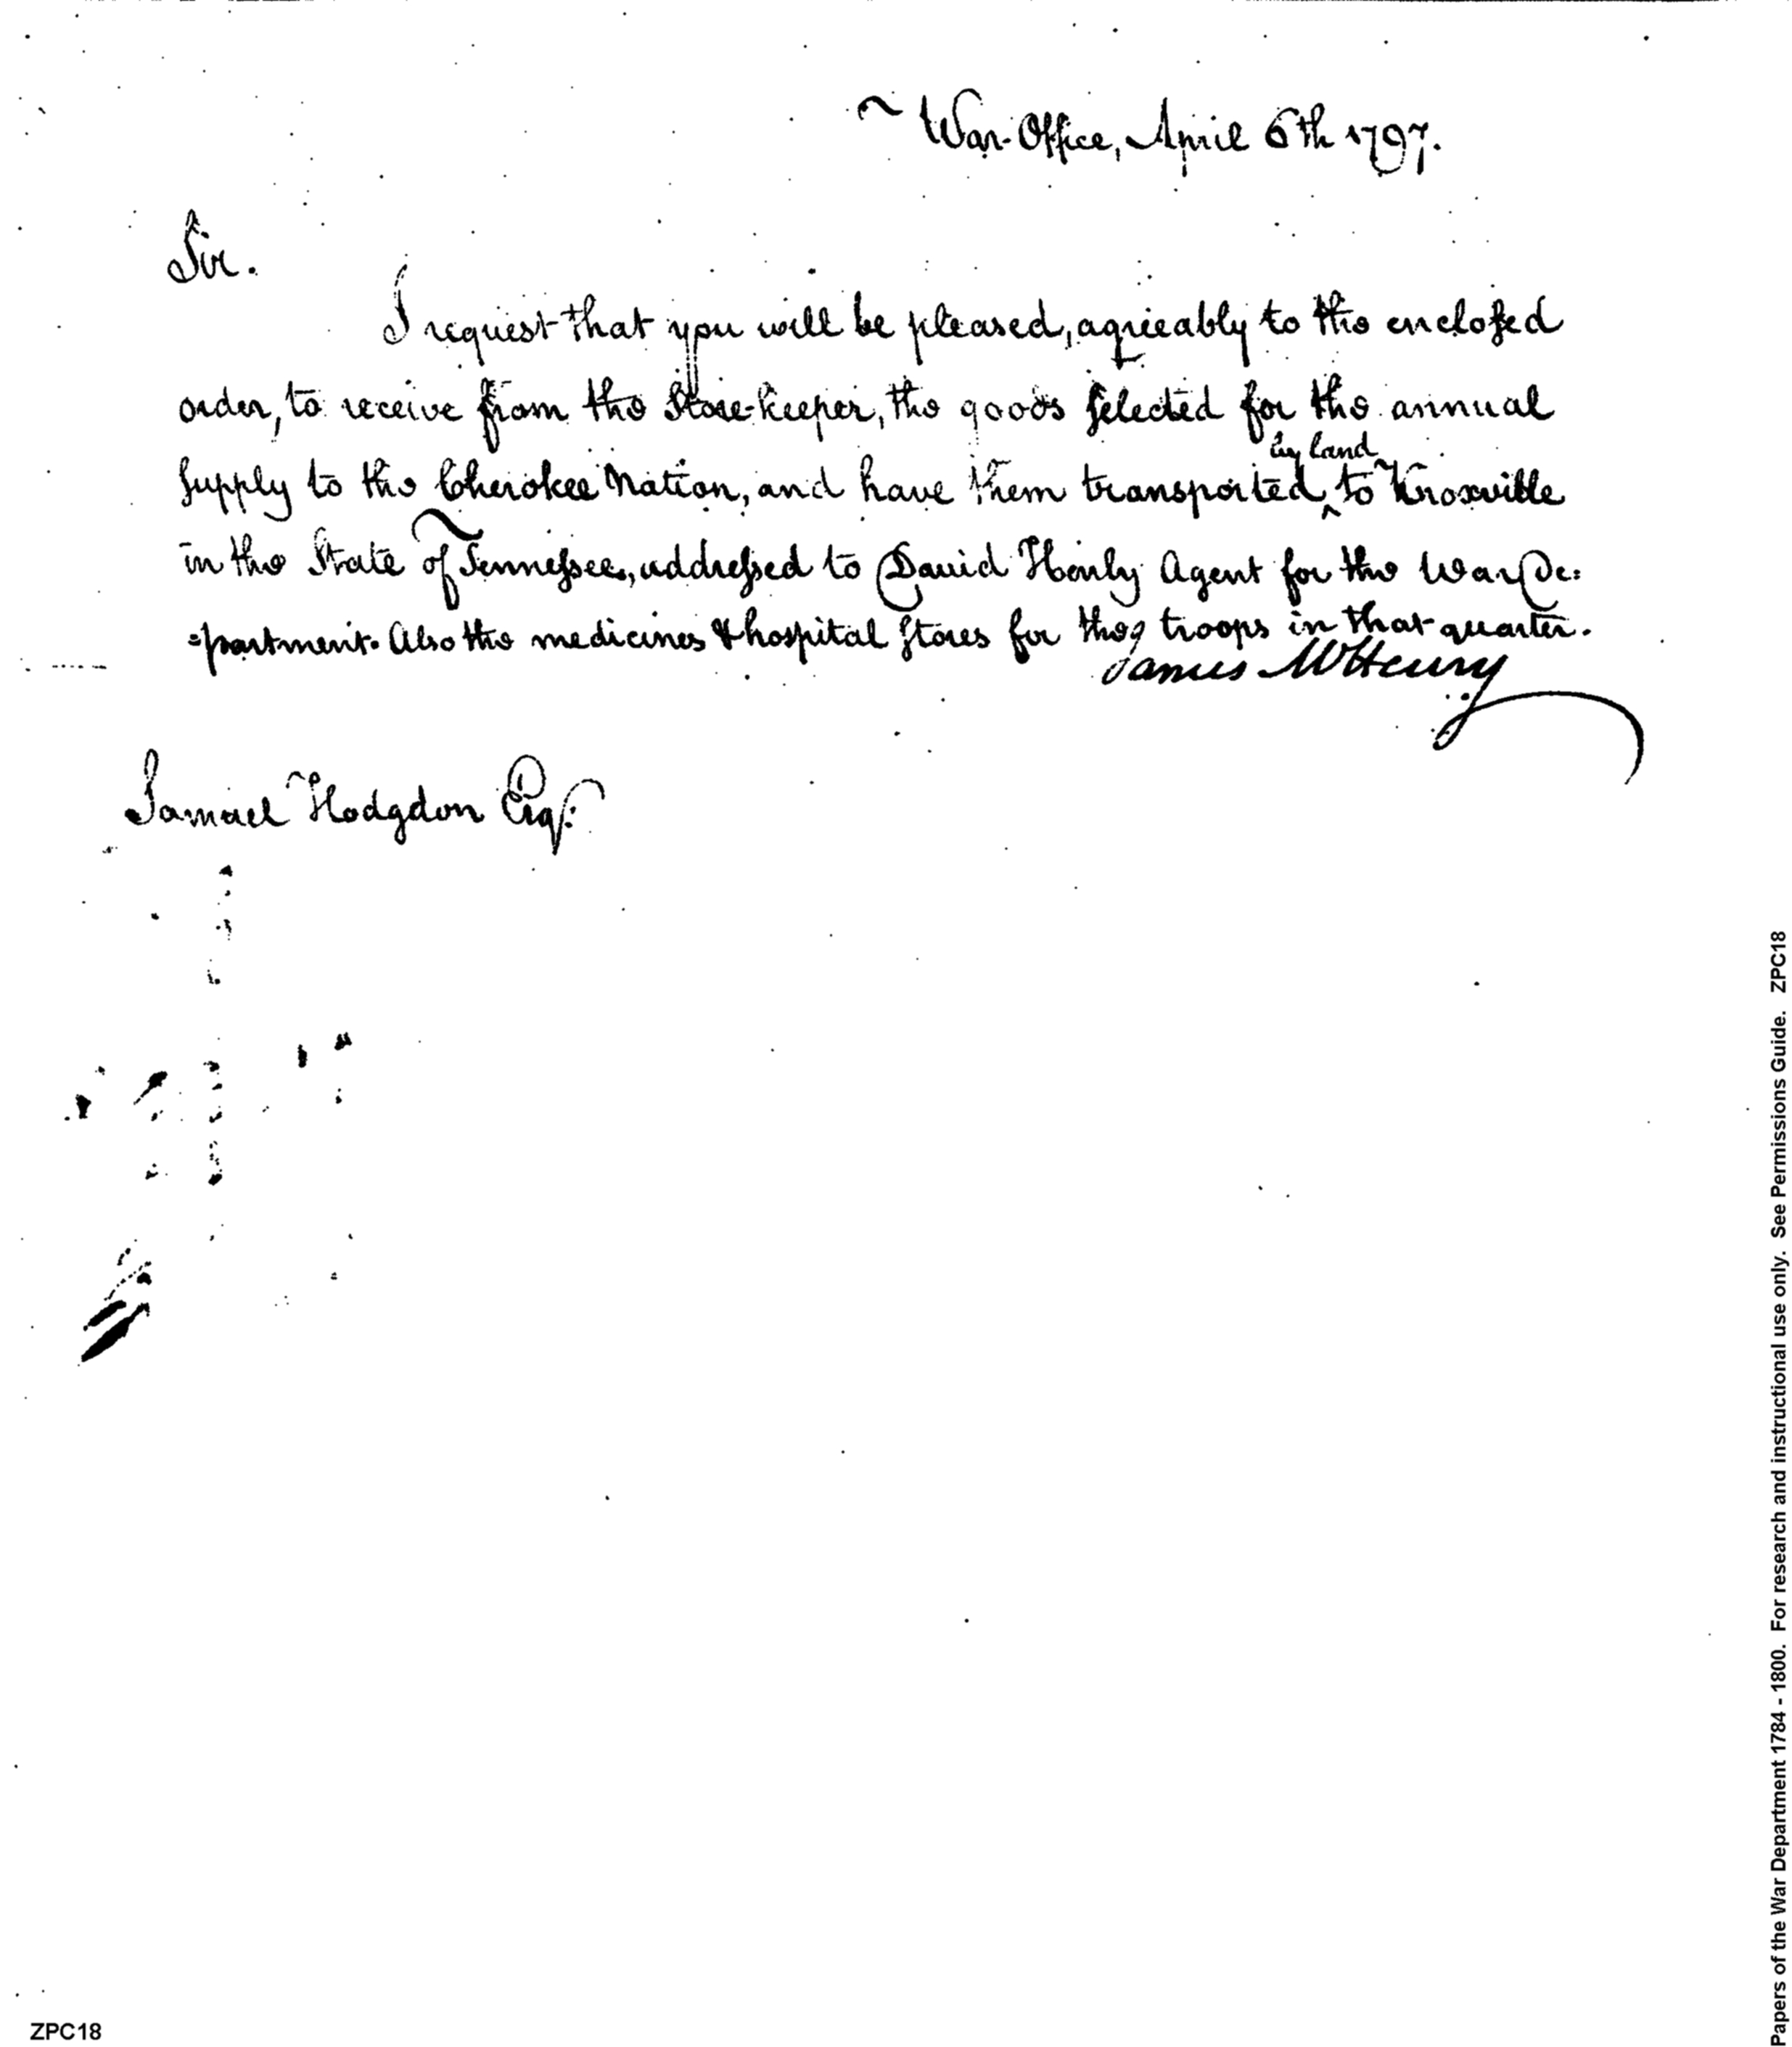 War-Office, April 6th 1797.
Sir.
I request that you will be pleased, agreeably to the enclosed
order, to receive from the Store-keeper, the goods selected for the annual
by land
supply to the Cherokee Nation, and have them transported ‸ to Knoxville
in the State of Tennessee, addressed to David Henly Agent for the War De=
=partment. Also the medicines & hospital stores for the troops in that quarter.
James McHenry
Samuel Hodgdon Esq:
Papers of the War Department 1784 - 1800. For research and instructional use only. See Permissions Guide. ZPC18
ZPC18